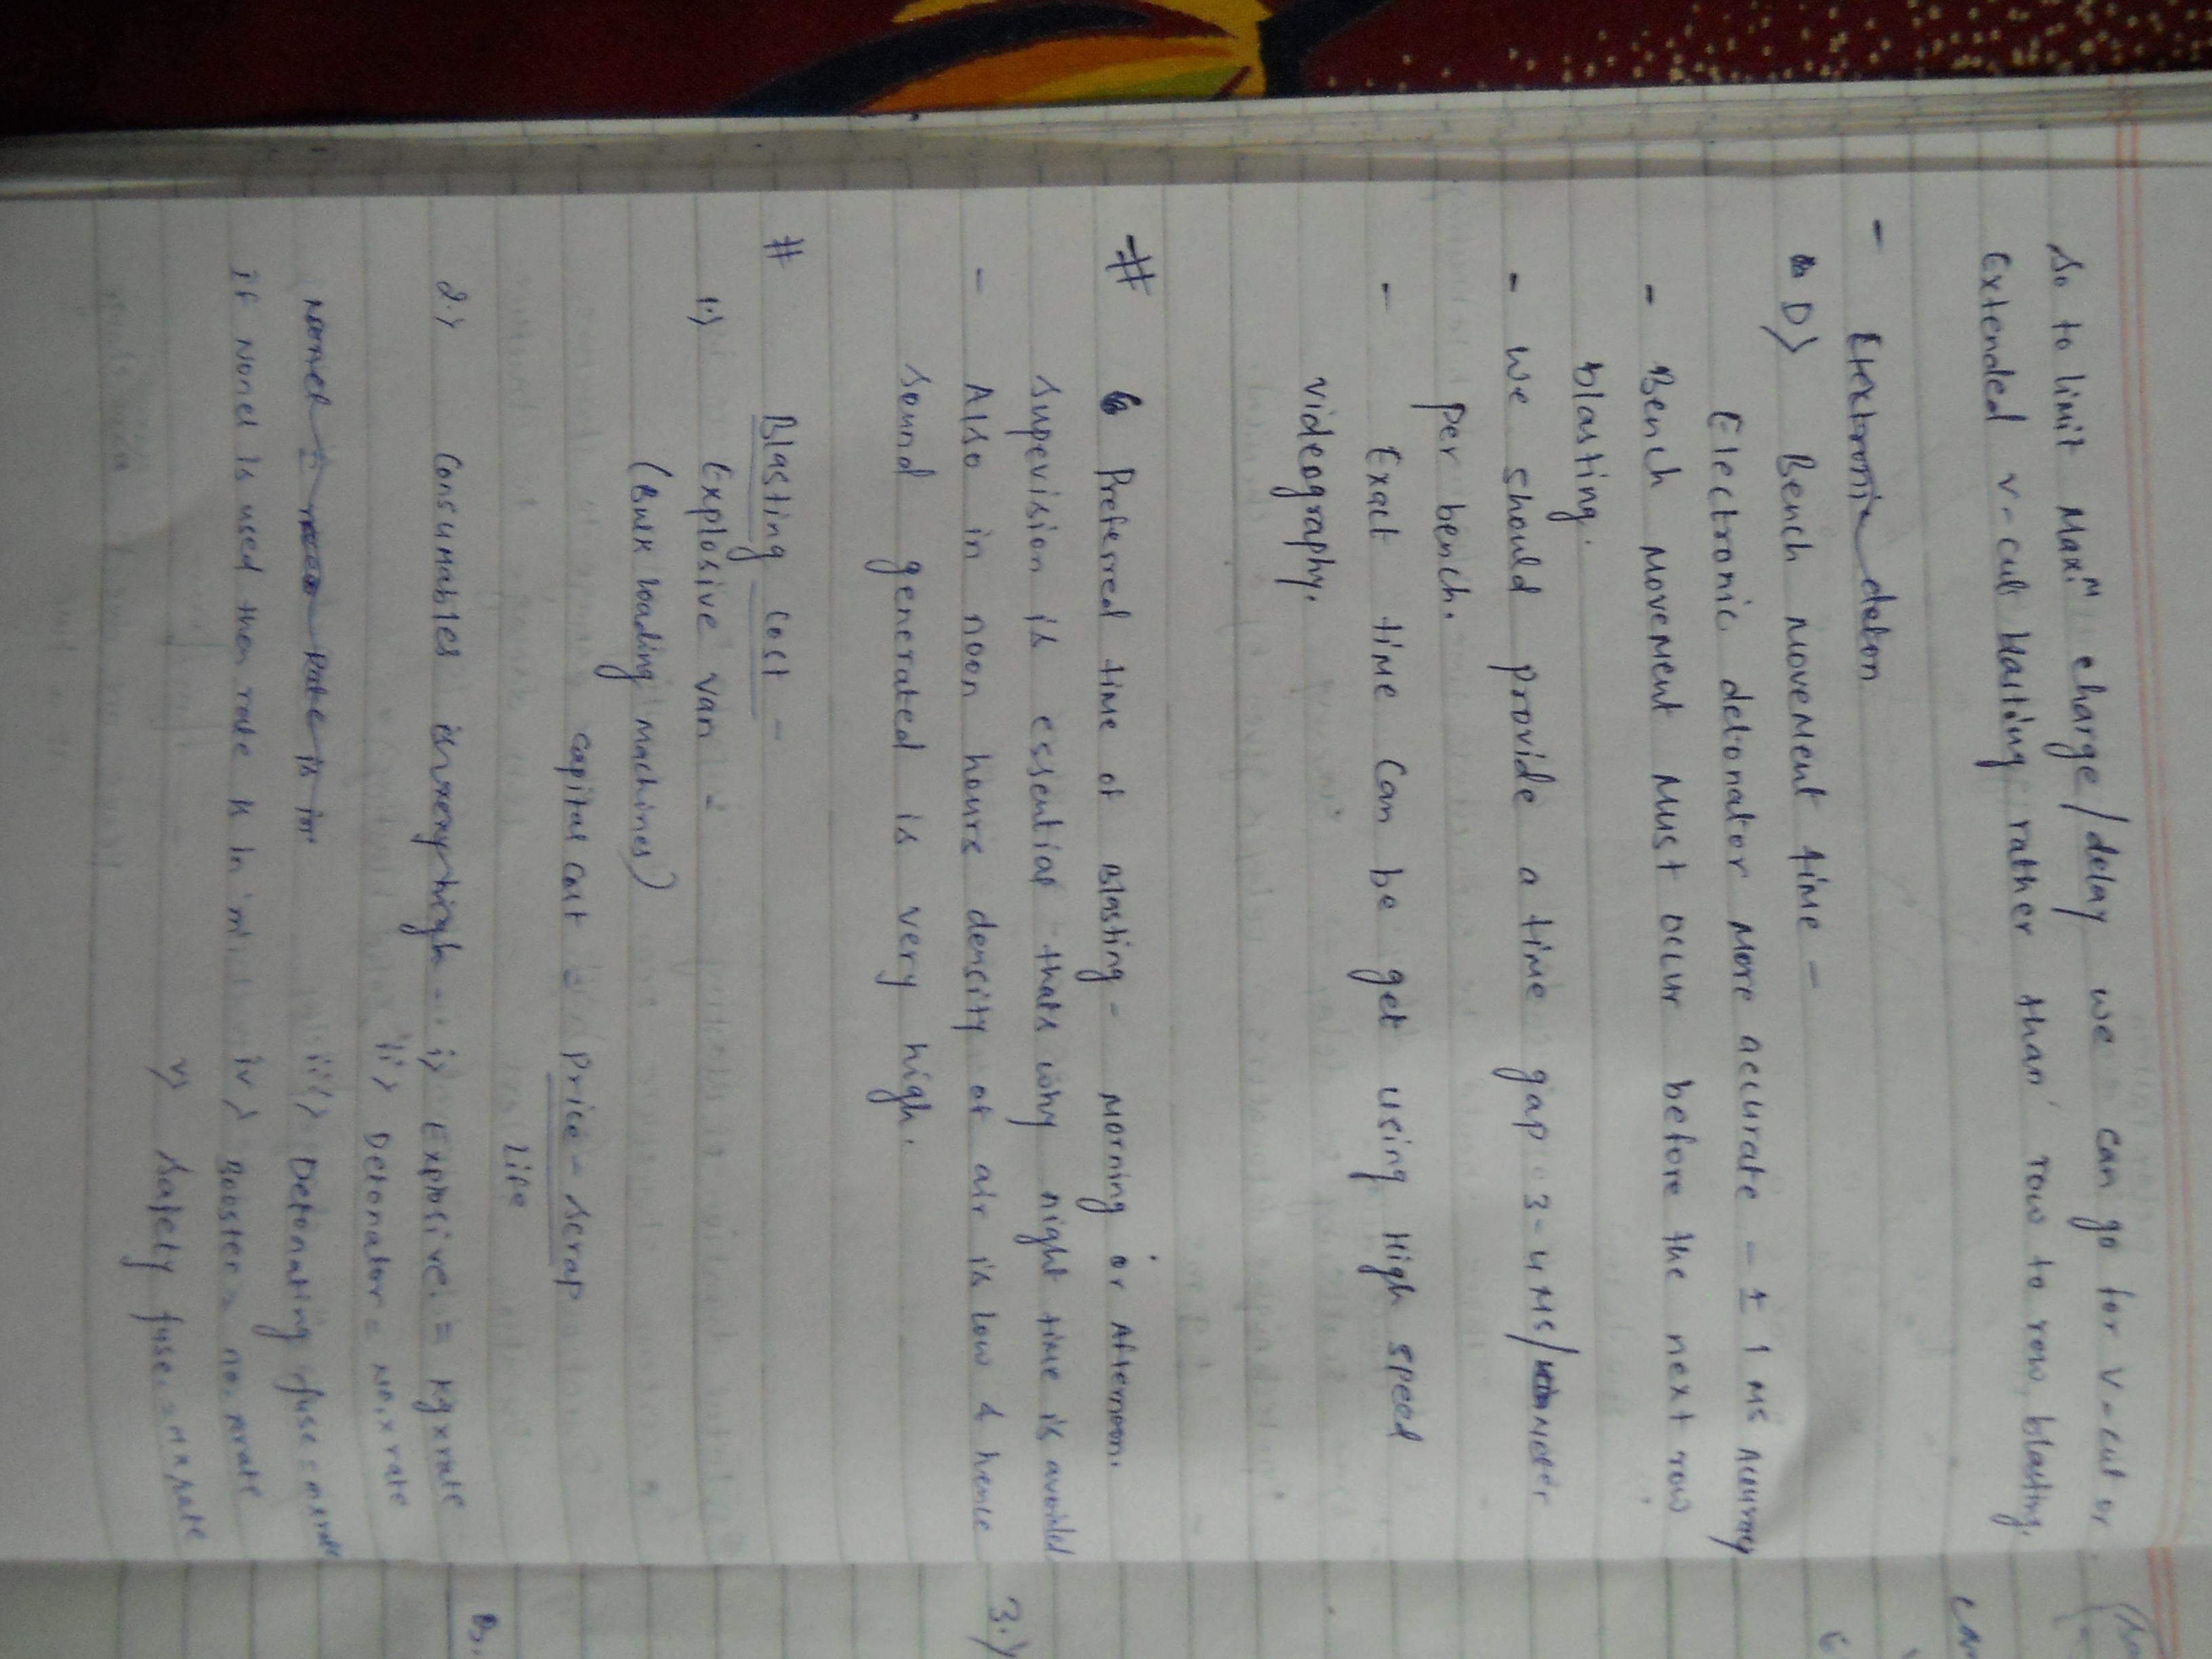 So to limit Max.ᵐ charge/delay we can go for v-cut or
Extended v-cut blasting rather than row to row, blasting.
- Electronic deton
D> Bench movement time -
Electronic detonator more accurate - ± 1 MS Accuracy
- Bench movement must occur before the next row
blasting.
- we should provide a time gap 3-4 MS/meter
per bench.
- Exact time can be get using High speed
videography.
# Preferred time of Blasting - Morning or Afternoon.
supevision is essential thats why night time is avoided
- Also in noon hours density of air is low & hence
sound generated is very high.
# Blasting Cost -
1.) Explosive van -
(Bulk loading machines)
capital cost = Price - scrap
Life
2.> consumables is very high - i> Explosive. = Kg x rate
ii> Detonator = No. x rate
Nonel rate is in iii> Detonating fuse = m x rate
if Nonel is used then rate is in 'm'. iv> Booster = no. x rate
v> Safety fuse. = m x rate
3.)